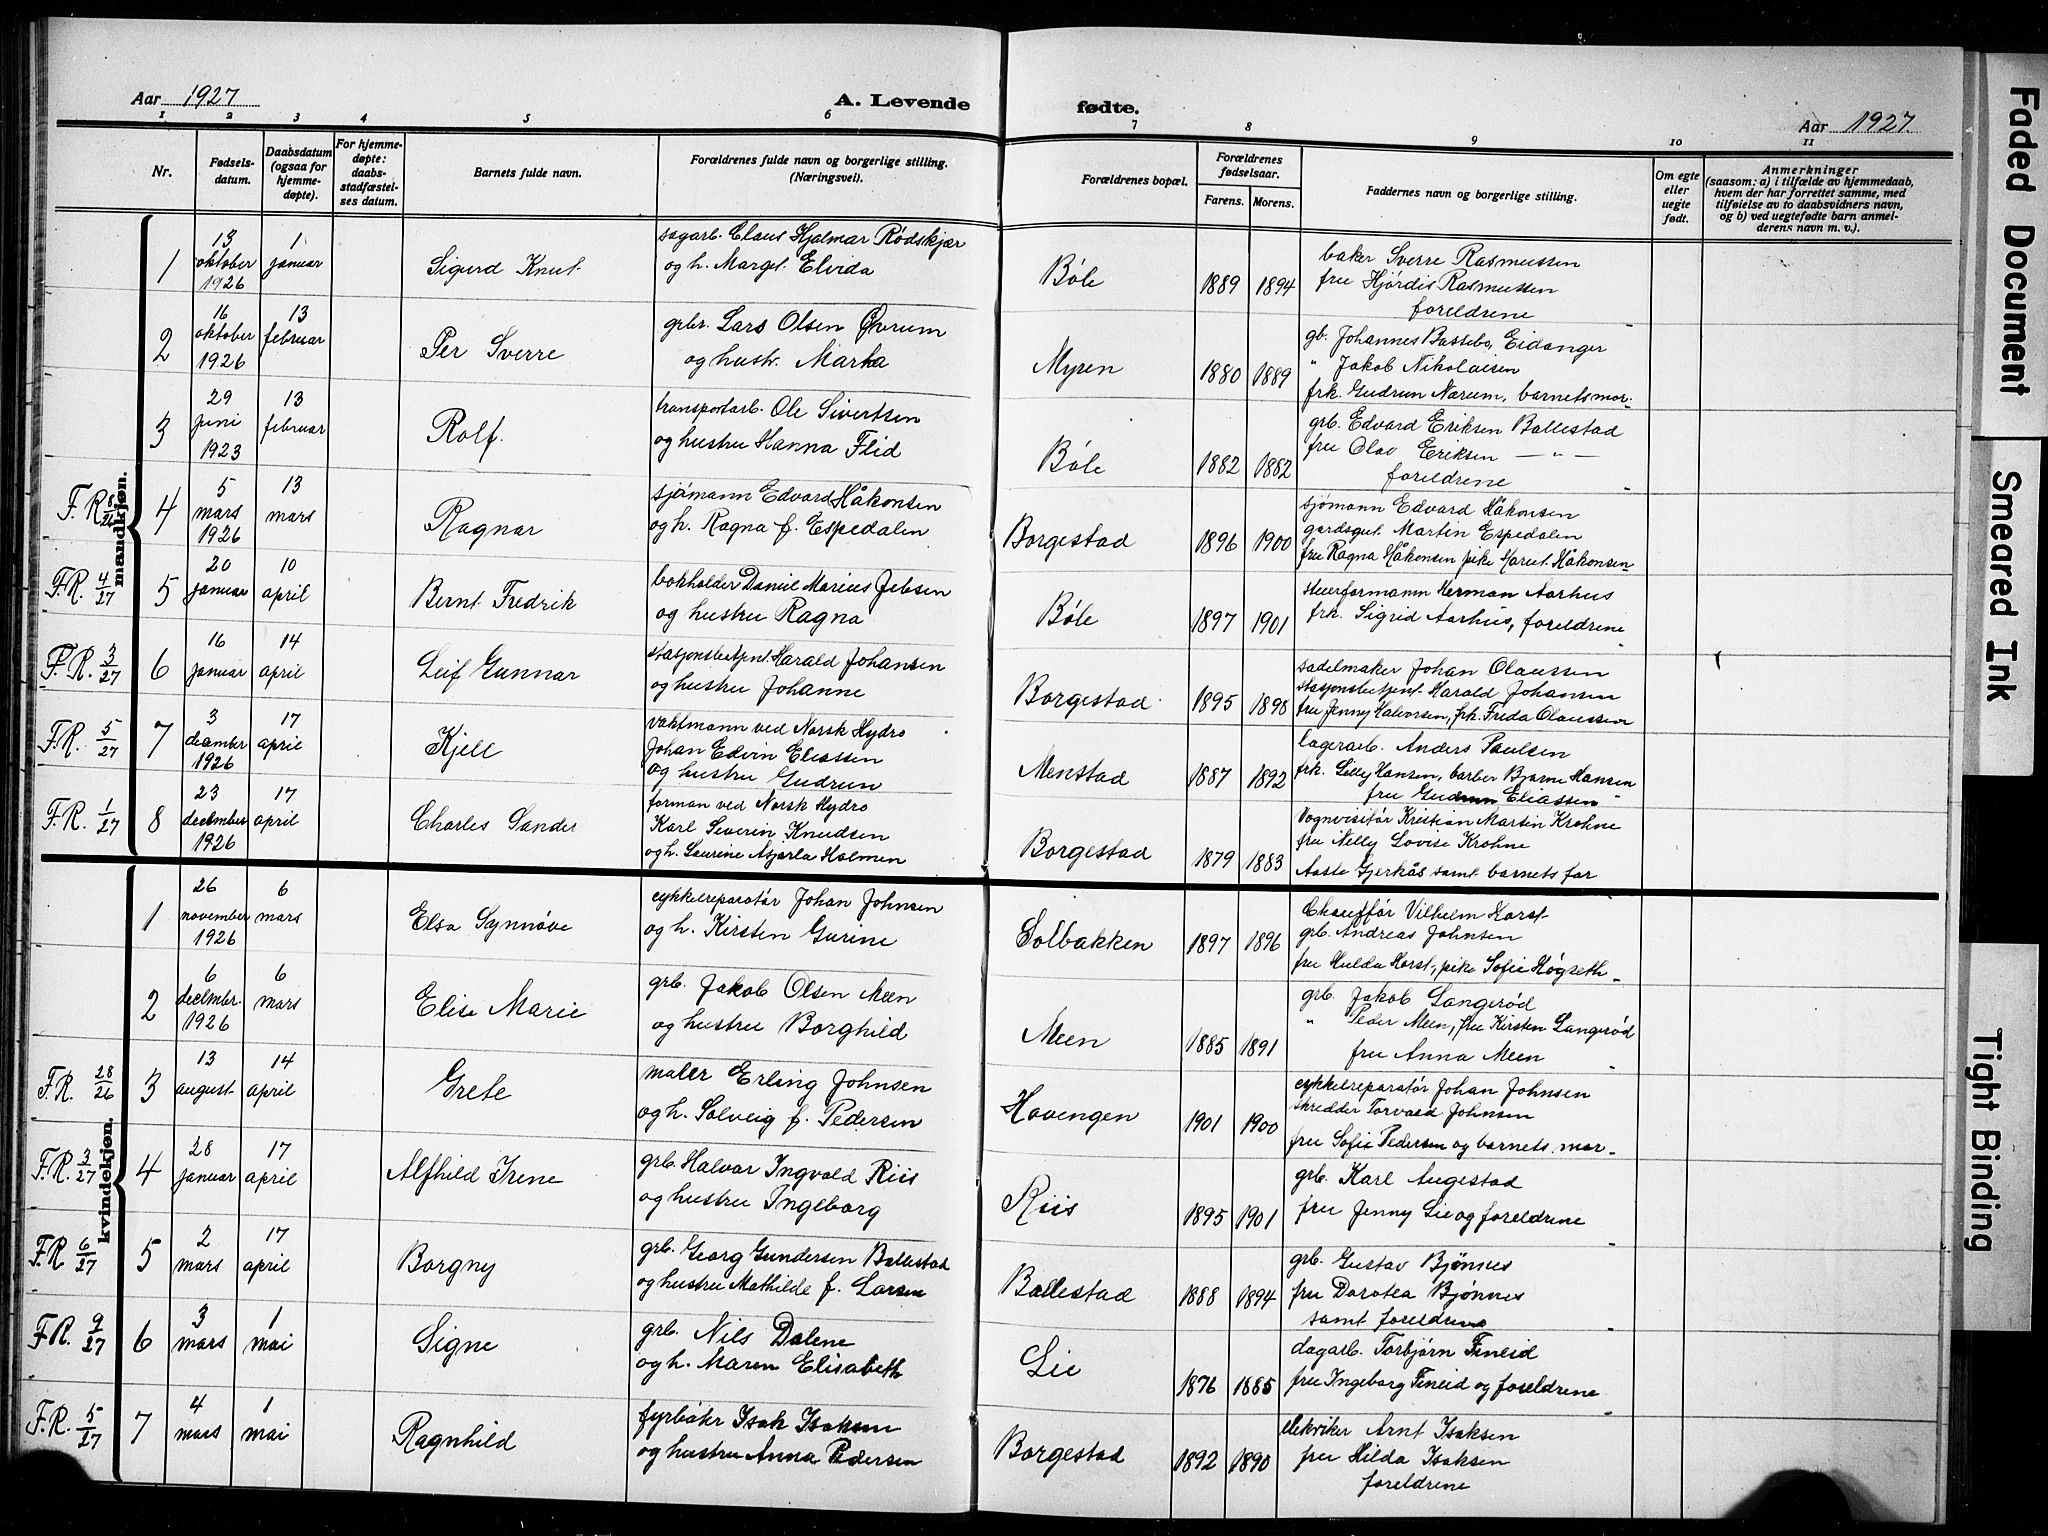 Aar 1927
A. Levende
fødte.
Aar 1927.
1 2 3 4 5 6 7 8 9 10 11
Nr.
Fødsels-
datum.
Daabsdatum
(ogsaa for
hjemme-
døpte).
For hjemme-
døpte:
daabs-
stadfæstel-
ses datum.
Barnets fulde navn.
Forældrenes fulde navn og borgerlige stilling.
(Næringsvei).
Forældrenes bopæl.
Forældrenes
fødselsaar.
Farens. Morens.
Faddernes navn og borgerlige stilling.
Om egte
eller
uegte
født.
Anmerkninger
(saasom: a) i tilfælde av hjemmedaab,
hvem der har forrettet samme, med
tilføielse av to daabsvidners navn,
og b) ved uegtefødte barn anmel-
derens navn m. v.).
mandkjøn.
1
13
oktober
1926
1
januar
Sigurd Knut.
sagarb. Claus Hjalmar Rødskjær
og h. Margt. Elvida
Bøle
1889 1894
baker Sverre Rasmussen
fru Hjørdis Rasmussen
foreldrene
2
16
oktober
1926
13
februar
Per Sverre
grbr. Lars Olsen
og hustr. Marka
Myren
1880 1889
gb. Johannes Bassebo, Eidanger
" Jakob Nikolaisen
frk. Gudrun Nærum, barnets mor.
3
29
juni
1923
13
februar
Rolf.
transportarb. Ole Sivertsen
og hustru Hanna Flid
Bøle
1882 1882
grb. Edvard Eriksen Ballestad
fru Olav Eriksen — " —
foreldrene
F. R.
4
5
mars
1926
13
mars
Ragnar
sjømann Edvard Håkonsen
og h. Ragna f. Espedalen
Borgestad
1896 1900
sjømann Edvard Håkonsen
gardsgut. Martin Espedalen
fru Ragna Håkonsen pike Marit Håkonsen
F.R. 4/27
5
20
januar
10
april
Bernt Fredrik
bokholder Daniel Marius Jebsen
og hustru Ragna
Bøle
1897 1901
steuerformann Herman Aarhus
frk. Sigrid Aarhus, foreldrene
F.R. 3/27
6
16
januar
14
april
Leif Gunnar
stasjonsbetjent Harald Johansen
og hustru Johanne
Borgestad
1895 1898
sadelmaker Johan Olaussen
stasjonsbetjent Harald Johansen
fru Jenny Halvorsen, frk. Freda Olaussen
F.R. 5/27
7
3
december
1926
17
april
Kjell
vaktmann ved Norsk Hydro
Johan Edvin Eliassen
og hustru Gudrun
Menstad
1887 1892
lagerarb. Anders Paulsen
frk. Lilly Hansen, barber Bjarne Hansen
fru Gudrun Eliassen
F.R. 1/27
8
23
december
1926
17
april
Charles Sander
forman ved Norsk Hydro
Karl Severin Knudsen
og h. Laurine Asjarla Holmen
Borgestad
1879 1883
Vognvisitør Kristian Martin Krohne
fru Nelly Lovise Krohne
Aaste Gjerkås samt barnets far
kvindekjøn.
1
26
november
1926
6
mars
Elsa Synnøve
cykkelreparatør Johan Johnsen
og h. Kirsten Gurine
Solbakken
1897 1896
Chauffør Vilhelm Horst
grb. Andreas Johnsen
fru Hulda Horst, pike Sofie Høgseth
2
6
decembr.
1926
6
mars
Elise Marie
grb. Jakob Olsen Meen
og hustru Borghild
Meen
1885 1891
grb. Jakob Langerød
" Peder Meen, fru Kirsten Langerød
fru Anna Meen
F.R. 28/26
3
13
august
14
april
Grete
maler Erling Johnsen
og h. Solveig f. Pedersen
Hovengen
1901 1900
cykkelreparatør Johan Johnsen
skredder Torvald Johnsen
fru Sofie Pedersen og barnets mor
F.R. 3/27
4
28
januar
17
april
Alfhild Irene
grb. Halvar Ingvald Riis
og hustru Ingeborg
Riis
1895 1901
grb. Karl Augestad
fru Jenny Lie og foreldrene
F.R. 6/27
5
2
mars
17
april
Borgny
grb. Georg Gundersen Ballestad
og hustru Mathilde f. Larsen
Ballestad
1888 1894
grb. Gustav Bjønnes
fru Dorotea Bjønnes
samt foreldrene
F.R. 9/27
6
3
mars
1
mai
Signe
grb. Nils Dalene
og h. Maren Elisabeth
Lie
1876 1885
dagarb. Torbjørn Fineid
fru Ingeborg Fineid og foreldrene
F.R. 5/27
7
4
mars
1
mai
Ragnhild
fyrbøter Isak Isaksen
og hustru Anna Pedersen
Borgestad
1892 1890
elekriker Arnt Isaksen
fru Hilda Isaksen
foreldrene
Faded Document
Smeared Ink
Tight Binding